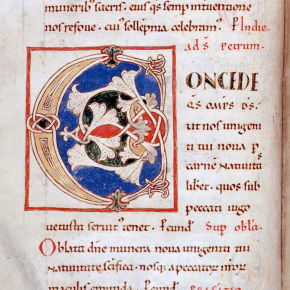 muneribus sacris. eius qs semp intuentione
nos refoue. cui sollepnia celebram. P. In die
ad s Petrum.
CONCEDE
QS OMPS DS.
ut nos unigeni
ti tui noua p
carnē natiuitas
libet. quos sub
peccati iugo
uetusta seruit tenet. P eund Sup obla.
Oblata dne munera noua unigeniti tui
natiuitate scifica. nosq; a peccator nror
maculis emunda. P eund